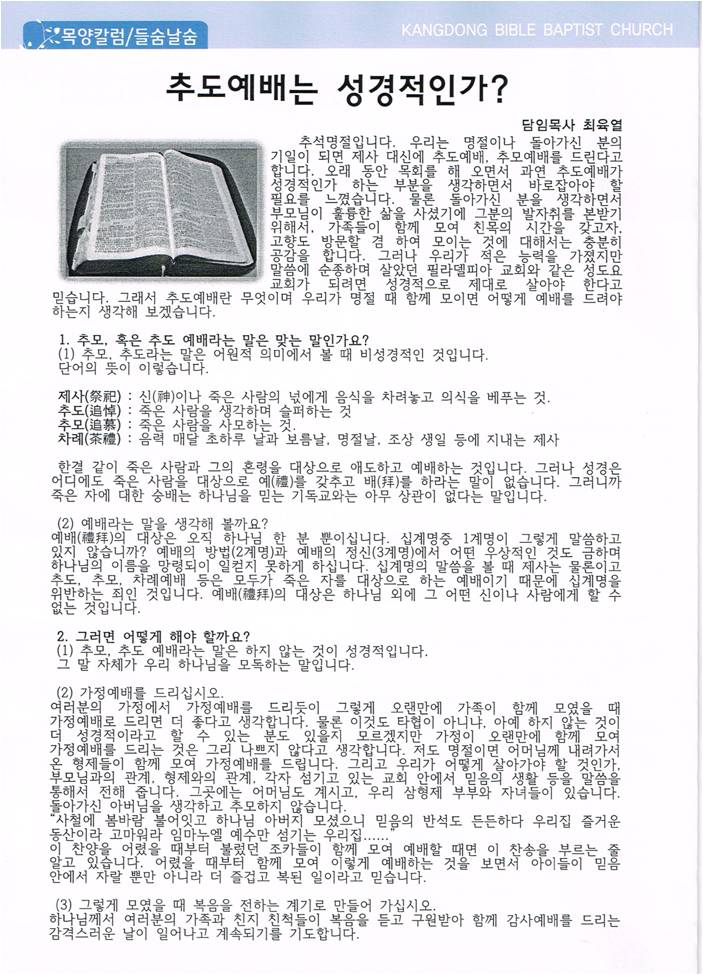 목양칼럼/들숨날숨
KANGDONG BIBLE BAPTIST CHURCH
추도예배는 성경적인가?
담임목사 최육열
추석명절입니다. 우리는 명절이나 돌아가신 분의
기일이 되면 제사 대신에 추도예배, 추모예배를 드린다고
합니다. 오래 동안 목회를 해 오면서 과연 추도예배가
성경적인가 하는 부분을 생각하면서 바로잡아야 할
필요를 느꼈습니다. 물론 돌아가신 분을 생각하면서
부모님이 훌륭한 삶을 사셨기에 그분의 발자취를 본받기
위해서, 가족들이 함께 모여 친목의 시간을 갖고자,
고향도 방문할 겸 하여 모이는 것에 대해서는 충분히
공감을 합니다. 그러나 우리가 적은 능력을 가졌지만
말씀에 순종하며 살았던 필라델피아 교회와 같은 성도요
교회가 되려면 성경적으로 제대로 살아야 한다고
믿습니다. 그래서 추도예배란 무엇이며 우리가 명절 때 함께 모이면 어떻게 예배를 드려야
하는지 생각해 보겠습니다.
1. 추모, 혹은 추도 예배라는 말은 맞는 말인가요?
(1) 추모, 추도라는 말은 어원적 의미에서 볼 때 비성경적인 것입니다.
단어의 뜻이 이렇습니다.
제사(祭祀) : 신(神)이나 죽은 사람의 넋에게 음식을 차려놓고 의식을 베푸는 것.
추도(追悼) : 죽은 사람을 생각하며 슬퍼하는 것
추모(追慕) : 죽은 사람을 사모하는 것.
차례(茶禮) : 음력 매달 초하루 날과 보름날, 명절날, 조상 생일 등에 지내는 제사
한결 같이 죽은 사람과 그의 혼령을 대상으로 애도하고 예배하는 것입니다. 그러나 성경은
어디에도 죽은 사람을 대상으로 예(禮)를 갖추고 배(拜)를 하라는 말이 없습니다. 그러니까
죽은 자에 대한 숭배는 하나님을 믿는 기독교와는 아무 상관이 없다는 말입니다.
(2) 예배라는 말을 생각해 볼까요?
예배(禮拜)의 대상은 오직 하나님 한 분 뿐이십니다. 십계명중 1계명이 그렇게 말씀하고
있지 않습니까? 예배의 방법(2계명)과 예배의 정신(3계명)에서 어떤 우상적인 것도 금하며
하나님의 이름을 망령되이 일컫지 못하게 하십니다. 십계명의 말씀을 볼 때 제사는 물론이고
추도, 추모, 차례예배 등은 모두가 죽은 자를 대상으로 하는 예배이기 때문에 십계명을
위반하는 죄인 것입니다. 예배(禮拜)의 대상은 하나님 외에 그 어떤 신이나 사람에게 할 수
없는 것입니다.
2. 그러면 어떻게 해야 할까요?
(1) 추모, 추도 예배라는 말은 하지 않는 것이 성경적입니다.
그 말 자체가 우리 하나님을 모독하는 말입니다.
(2) 가정예배를 드리십시오.
여러분의 가정에서 가정예배를 드리듯이 그렇게 오랜만에 가족이 함께 모였을 때
가정예배로 드리면 더 좋다고 생각합니다. 물론 이것도 타협이 아니냐, 아예 하지 않는 것이
더 성경적이라고 할 수 있는 분도 있을지 모르겠지만 가정이 오랜만에 함께 모여
가정예배를 드리는 것은 그리 나쁘지 않다고 생각합니다. 저도 명절이면 어머님께 내려가서
온 형제들이 함께 모여 가정예배를 드립니다. 그리고 우리가 어떻게 살아가야 할 것인가,
부모님과의 관계, 형제와의 관계, 각자 섬기고 있는 교회 안에서 믿음의 생활 등을 말씀을
통해서 전해 줍니다. 그곳에는 어머님도 계시고, 우리 삼형제 부부와 자녀들이 있습니다.
돌아가신 아버님을 생각하고 추모하지 않습니다.
“사철에 봄바람 불어잇고 하나님 아버지 모셨으니 믿음의 반석도 든든하다 우리집 즐거운
동산이라 고마워라 임마누엘 예수만 섬기는 우리집......”
이 찬양을 어렸을 때부터 불렀던 조카들이 함께 모여 예배할 때면 이 찬송을 부르는 줄
알고 있습니다. 어렸을 때부터 함께 모여 이렇게 예배하는 것을 보면서 아이들이 믿음
안에서 자랄 뿐만 아니라 더 즐겁고 복된 일이라고 믿습니다.
(3) 그렇게 모였을 때 복음을 전하는 계기로 만들어 가십시오.
하나님께서 여러분의 가족과 친지 친척들이 복음을 듣고 구원받아 함께 감사예배를 드리는
감격스러운 날이 일어나고 계속되기를 기도합니다.